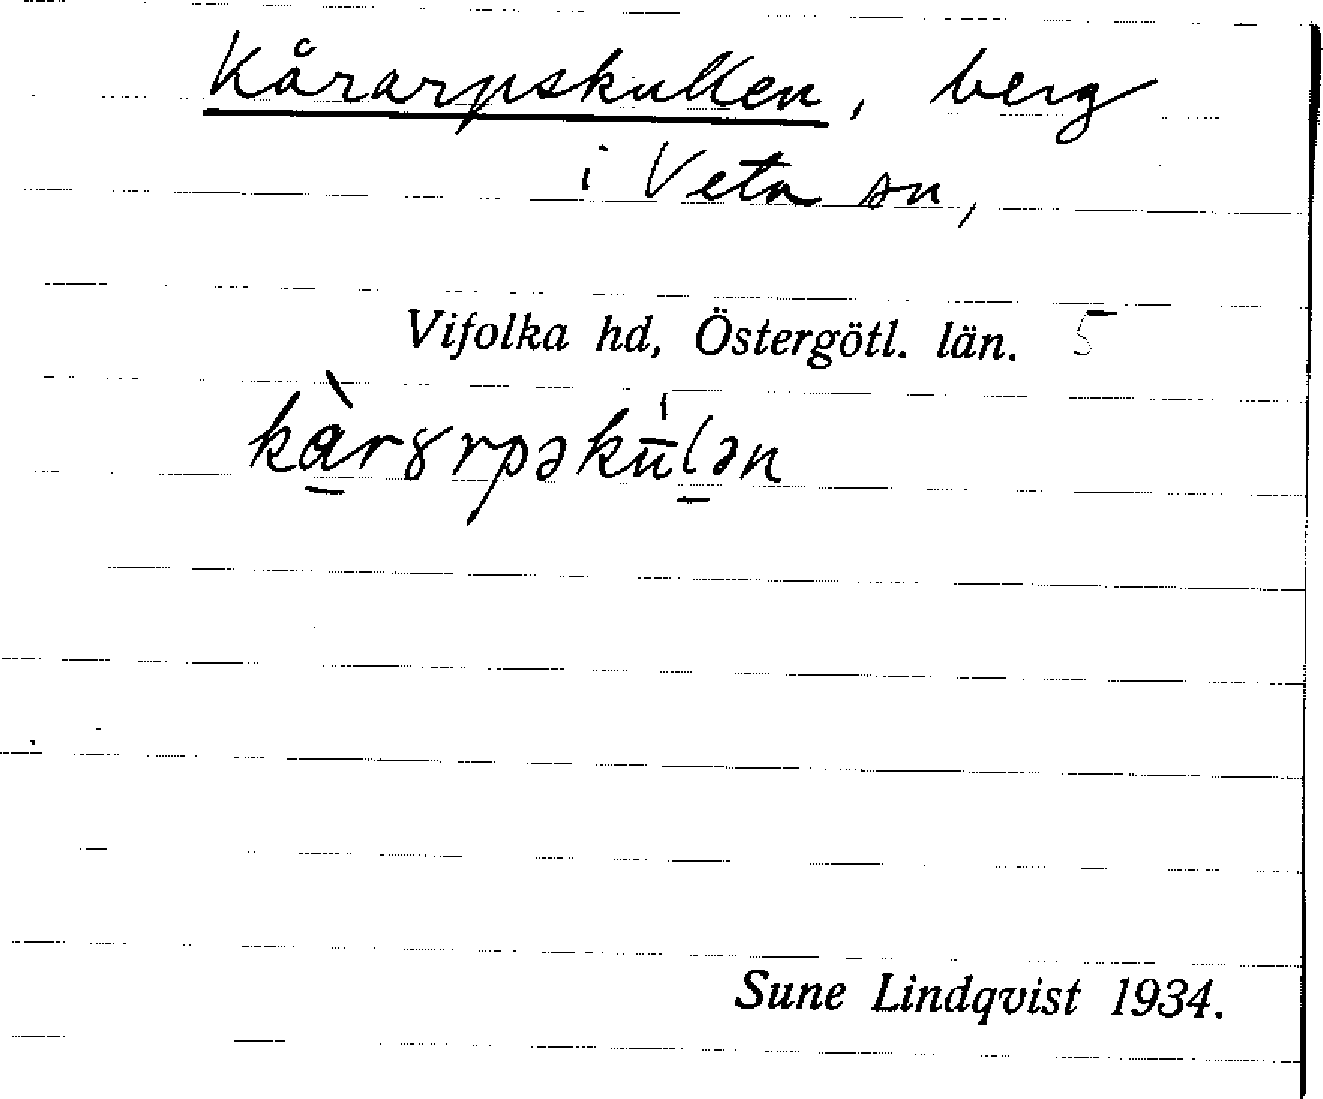 Kårarpskullen, berg
i Veta sn,
Vifolka hd, Östergötl. län. 5
Sune Lindqvist 1934.